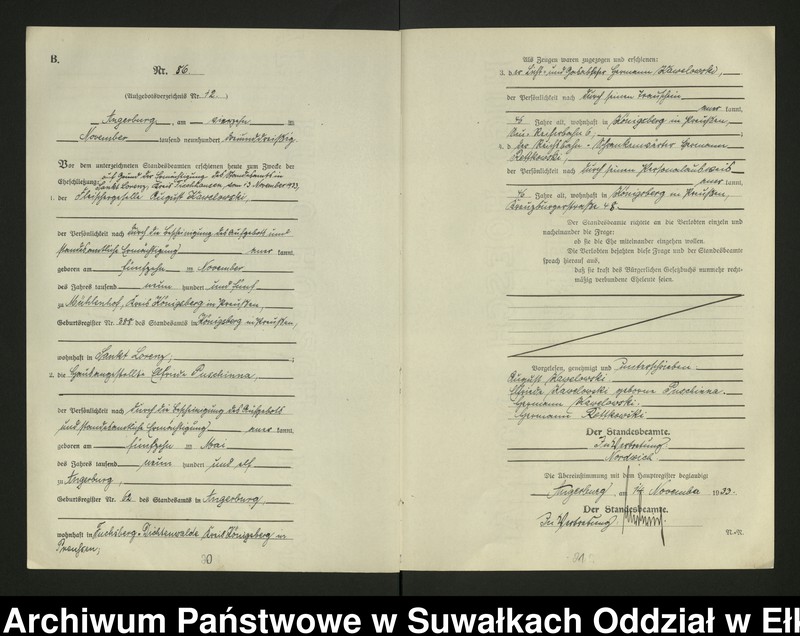 B.
Nr. 86
(Aufgebotsverzeichnis Nr. 72.)
Angerburg, am vierzehn ten
November tausend neunhundert dreiunddreißig.
Vor dem unterzeichneten Standesbeamten erschienen heute zum Zwecke der
auf Grund der Ermächtigung des Standesamts in
Eheschließung: Sankt Lorenz, Kreis Fischhausen, vom 13 November 1933.
1. der Fleischergeselle August Kawelowski,
der Persönlichkeit nach durch die Bescheinigung des Aufgebots und
standesamtliche Ermächtigung aner kannt,
geboren am fünfzehn ten November
des Jahres tausend neun hundert und fünf
zu Mühlenhof, Kreis Königsberg in Preußen,
Geburtsregister Nr. 388 des Standesamts in Königsberg in Preußen,
wohnhaft in Sankt Lorenz,
2. die Hausangestellte Elfriede Puschinna,
der Persönlichkeit nach durch die Bescheinigung des Aufgebots
und standesamtliche Ermächtigung aner kannt,
geboren am fünfzehn ten Mai
des Jahres tausend neun hundert und elf
zu Angerburg,
Geburtsregister Nr. 62 des Standesamts in Angerburg,
wohnhaft in Fuchsberg-Dichtenwalde Kreis Königsberg in
Preußen,
30
Als Zeugen waren zugezogen und erschienen:
3. der Hermann Kawelowski,
der Persönlichkeit nach durch seinen Trauschein
aner kannt,
46 Jahre alt, wohnhaft in Königsberg in Preußen,
6,
4. der Hermann
Rettkowski,
der Persönlichkeit nach durch seinen Personalausweis
aner kannt,
46 Jahre alt, wohnhaft in Königsberg in Preußen,
Kreuzburgerstraße 48.
Der Standesbeamte richtete an die Verlobten einzeln und
nacheinander die Frage:
ob sie die Ehe miteinander eingehen wollen.
Die Verlobten bejahten diese Frage und der Standesbeamte
sprach hierauf aus,
daß sie kraft des Bürgerlichen Gesetzbuchs nunmehr recht-
mäßig verbundene Eheleute seien.
Vorgelesen, genehmigt und unterschrieben.
August Kawelowski
Elfriede Kawelowski geborene Puschinna.
Hermann Kawelowski.
Hermann Rettkowski
Der Standesbeamte.
In Vertretung
Nordwich
Die Übereinstimmung mit dem Hauptregister beglaubigt
Angerburg, am 14 November 1933.
Der Standesbeamte.
In Vertretung
N.-N.
31
Archiwum Państwowe w Suwałkach Oddział w Ełk